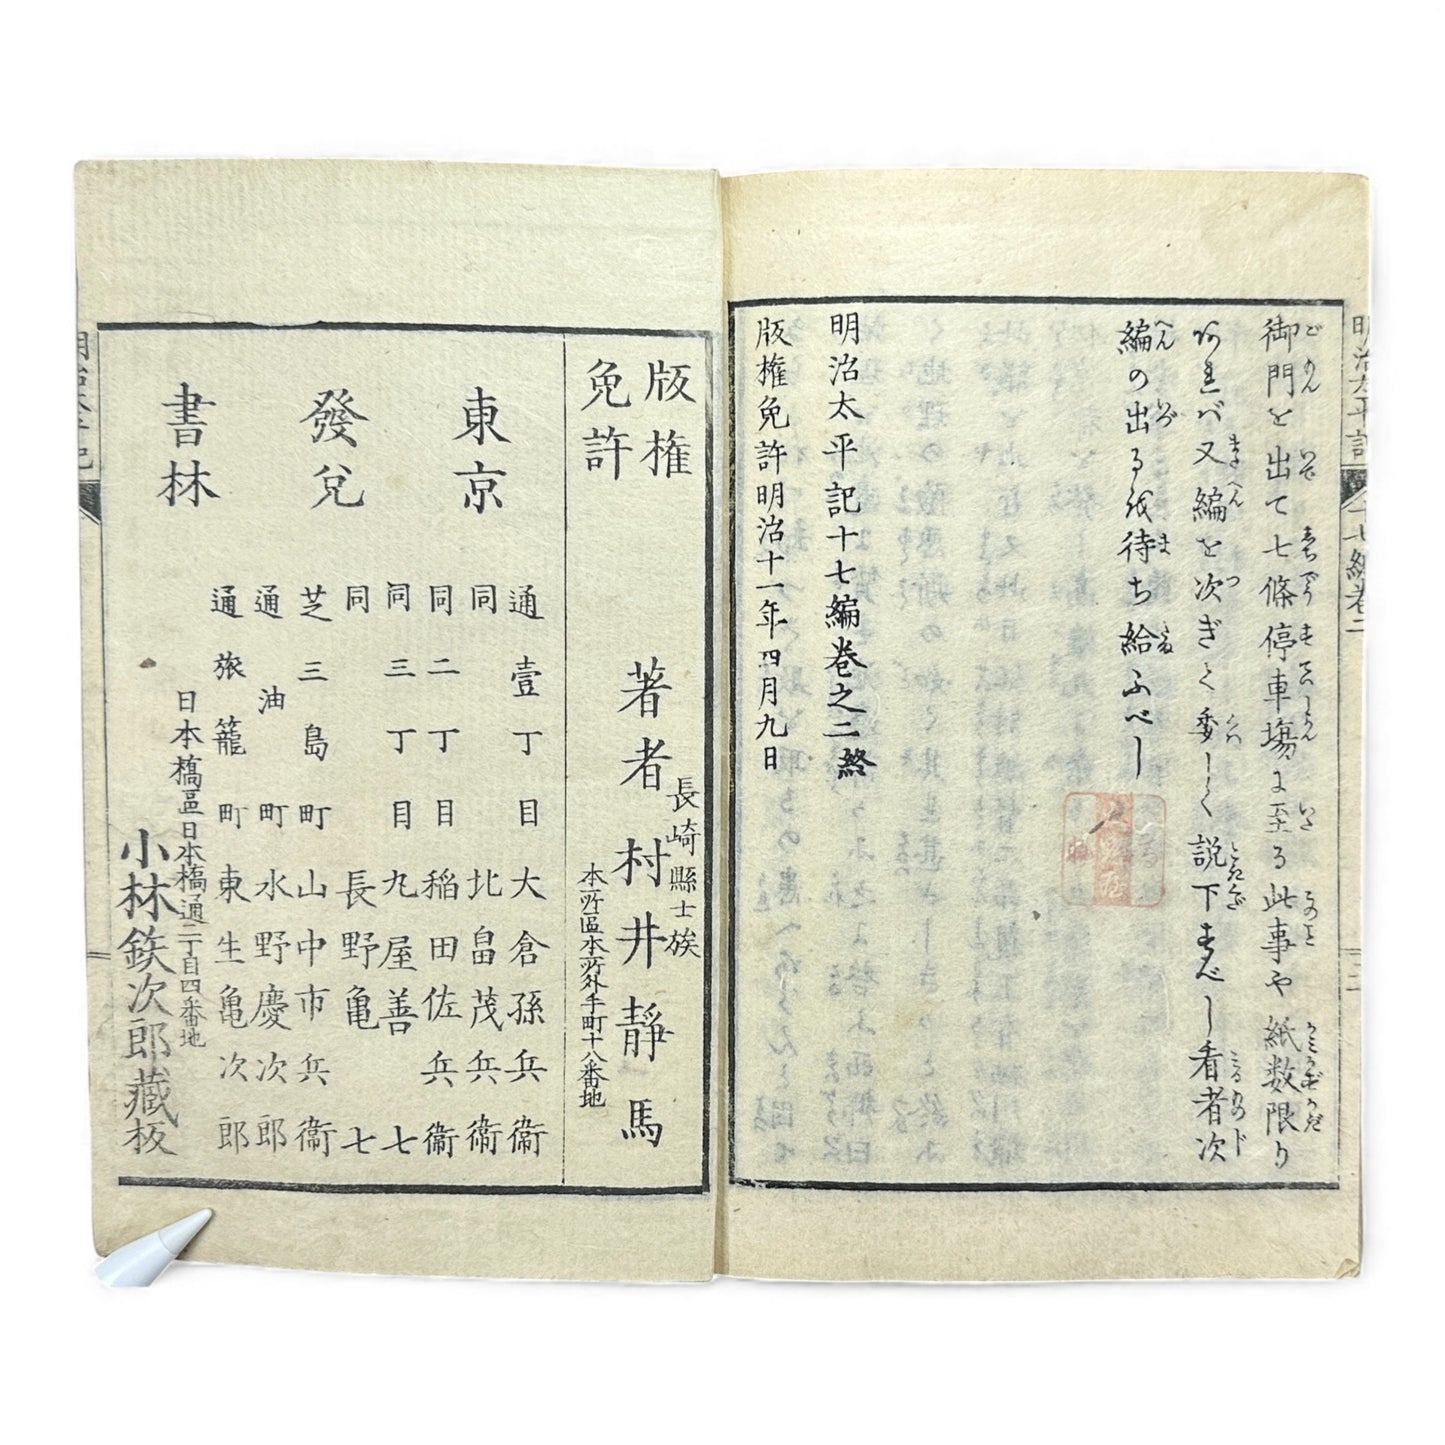 明治太平記
十七編巻二
御門を出て七條停車塲に至る此事や紙数限り
あれバ又編を次ぎて委しく説下すべし看者次
編の出るを待ち給ふべし
明治太平記十七編巻之二終
版権免許明治十一年四月九日
版権
免許
長崎縣士族
著者 村井靜馬
本所區本所外手町十八番地
東京
發兌
書林
通壹丁目 大倉孫兵衞
同 北畠茂兵衞
同二丁目 稲田佐兵衞
同三丁目 九屋善七
同 長野亀七
芝三島町 山中市兵衞
通油町 水野慶次郎
通旅籠町 東生亀次郎
日本橋區日本橋通二丁目四番地
小林鉄次郎藏板